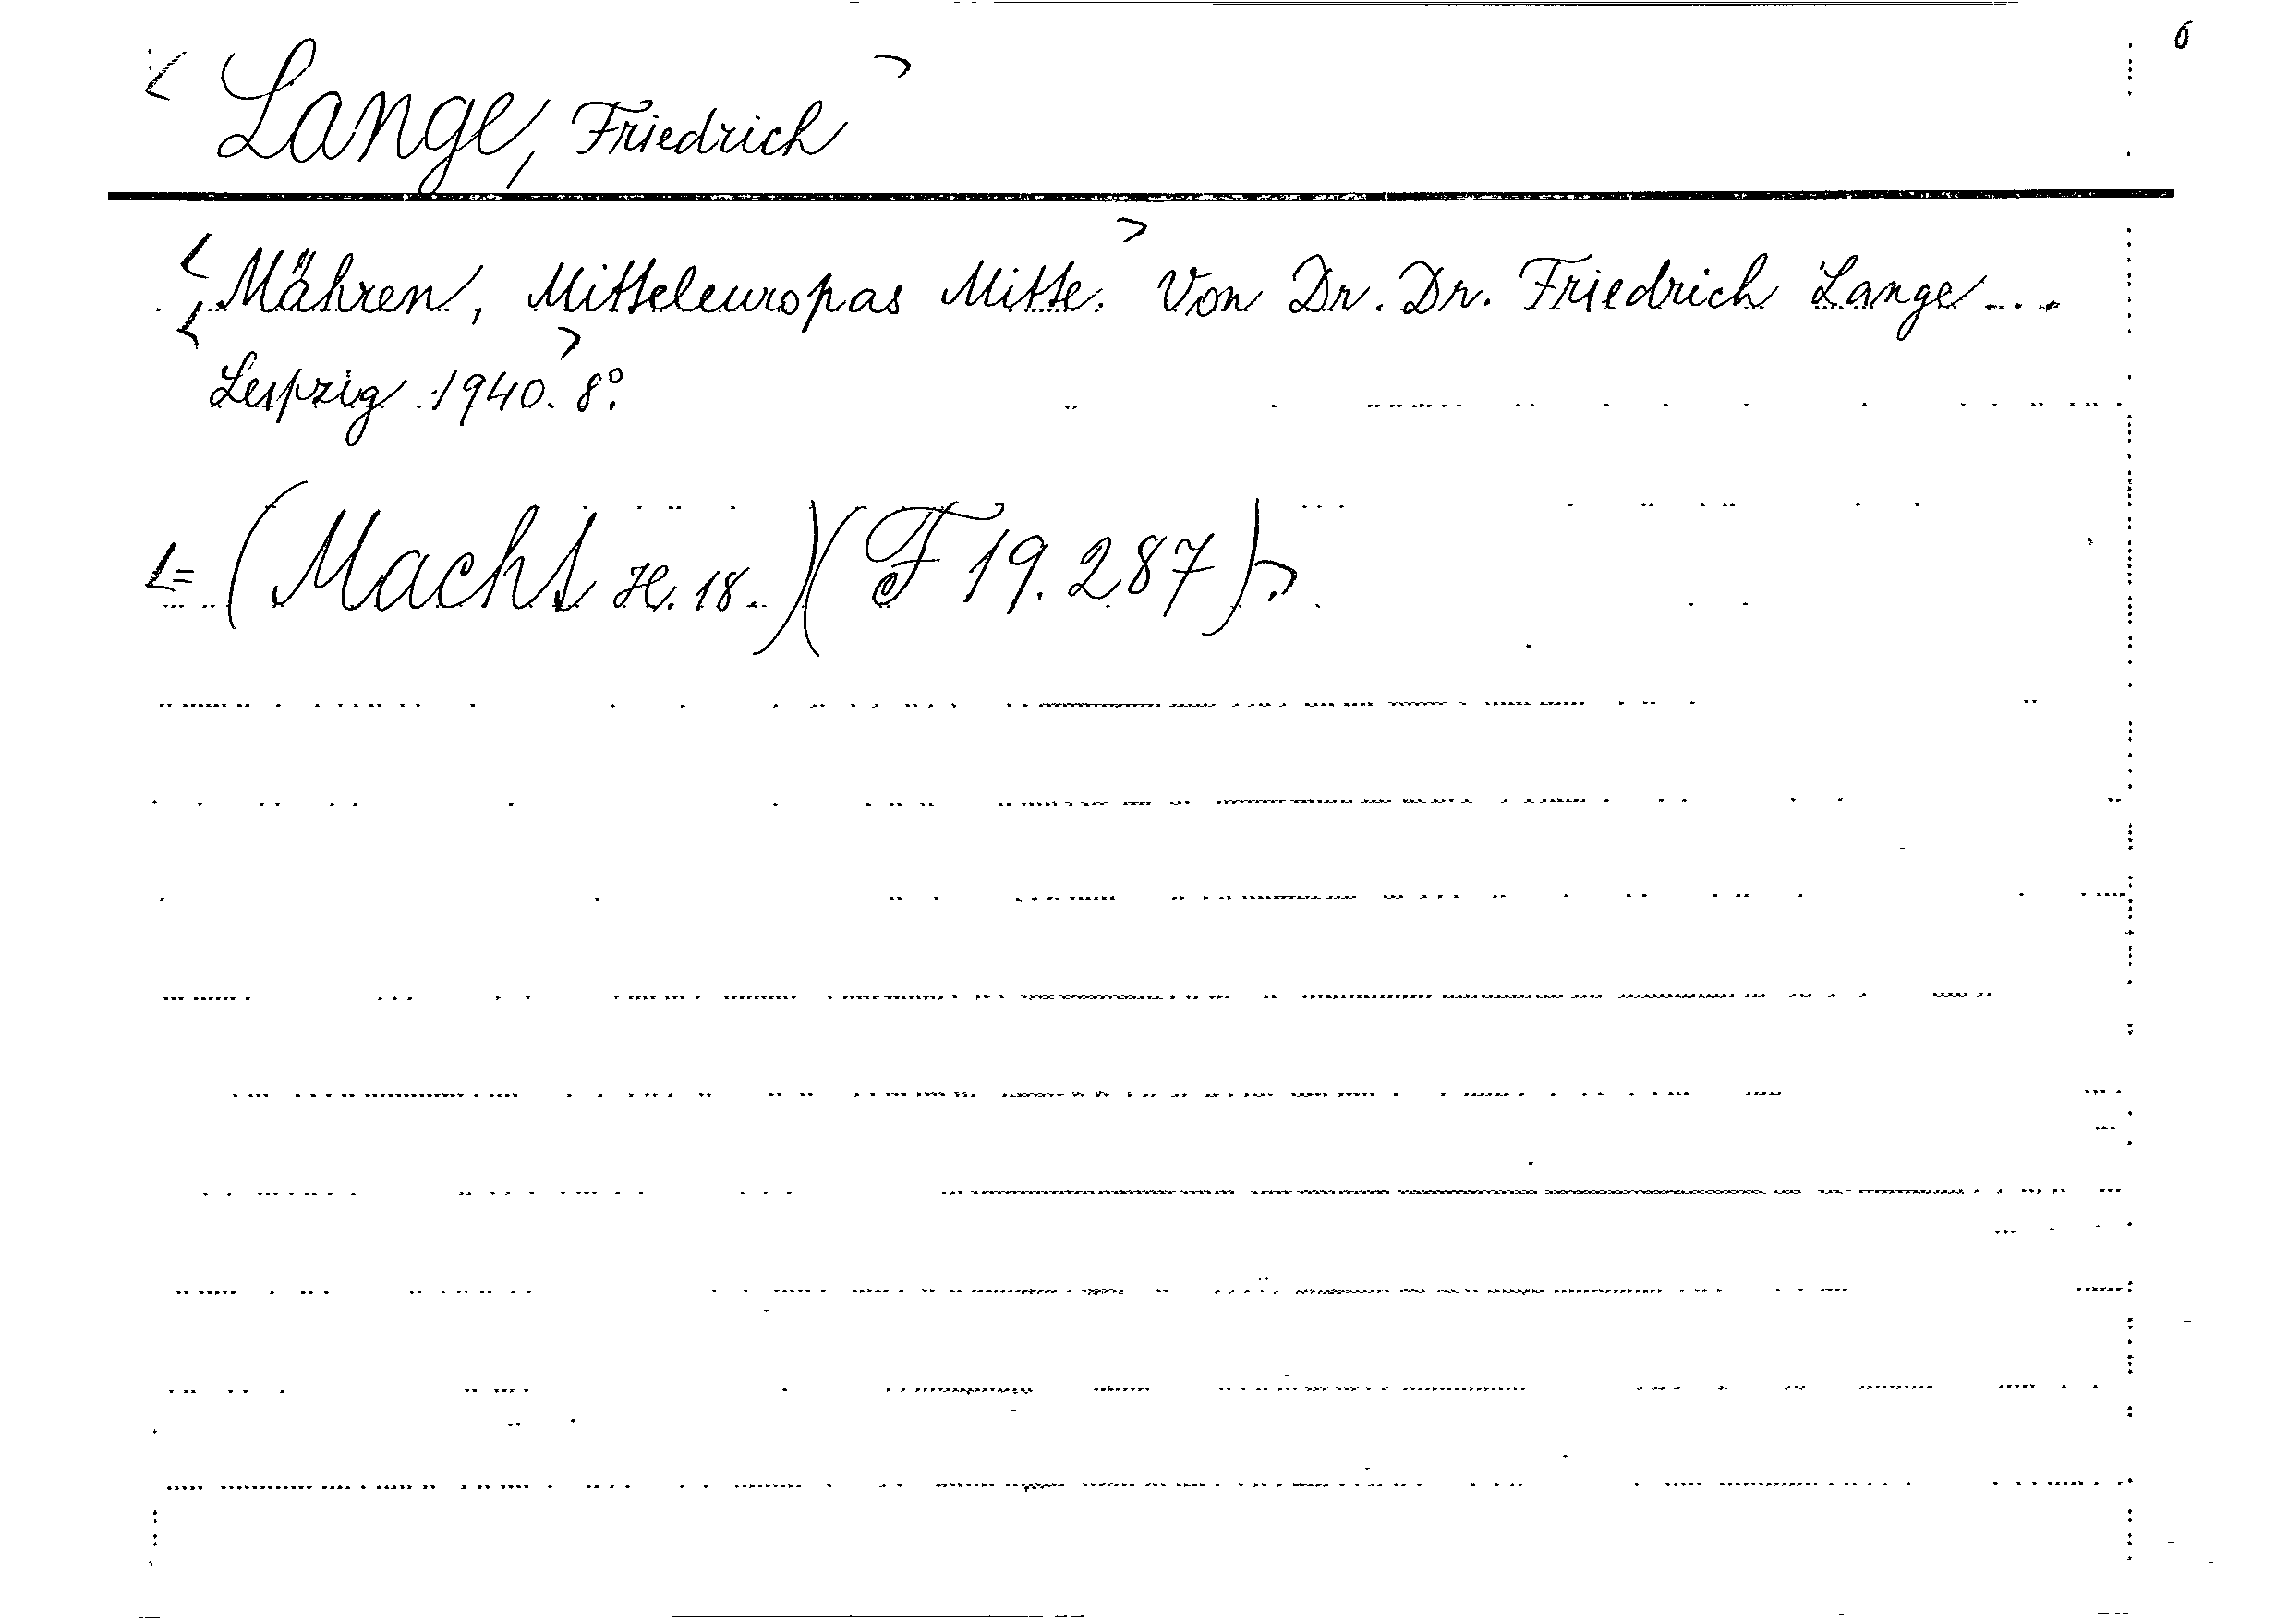 6
< Lange, Friedrich >
< Mähren, Mitteleuropas Mitte. > Von Dr. Dr. Friedrich Lange...
< Leipzig 1940. > 8°.
<= (Macht H. 18.)(F 19.287)>.